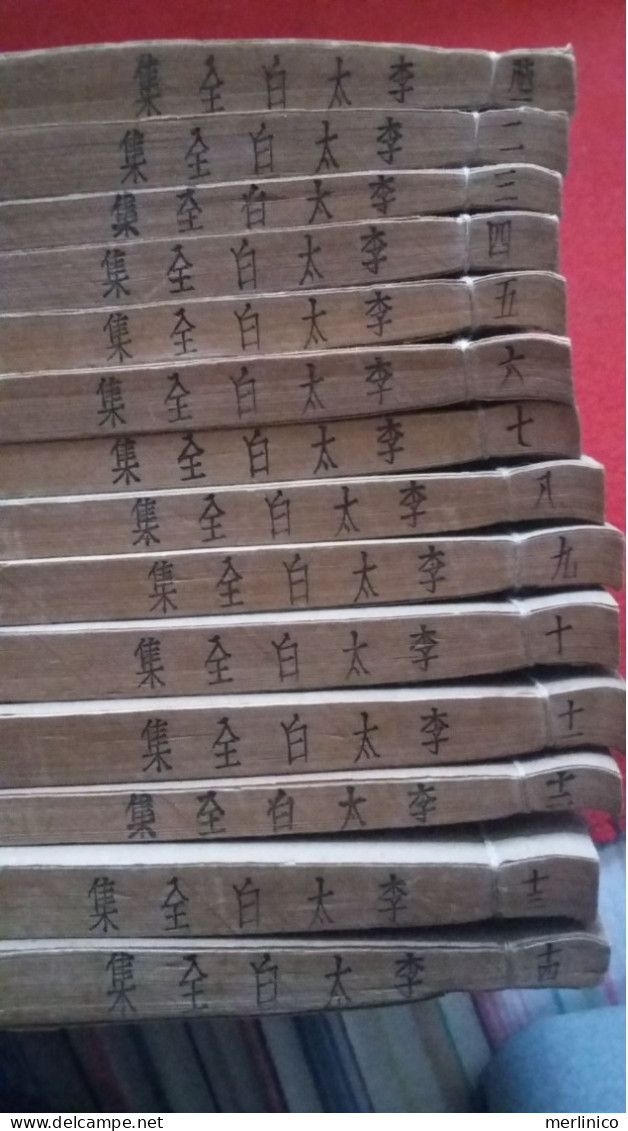 李太白全集
二 李太白全集
三 李太白全集
四 李太白全集
五 李太白全集
六 李太白全集
七 李太白全集
八 李太白全集
九 李太白全集
十 李太白全集
十一 李太白全集
十二 李太白全集
十三 李太白全集
十四 李太白全集
merlinico